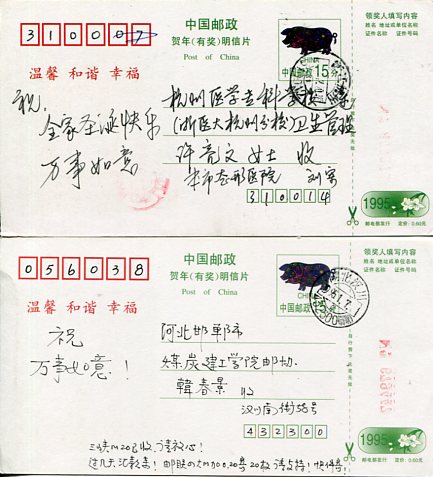 310007
中国邮政
贺年(有奖)明信片
Post of China
温馨 和谐 幸福
CHINA
中国邮政 15分
领奖人填写内容
姓名 地址或单位名称
证件名称 证件号码
祝:
全家圣诞快乐
万事如意
杭州医学专科学校
(浙医大杭州分校)卫生管理
许亮文 女士 收
本市 医院 刘
310014
1995
邮电部发行 定价:0.60元
056038
中国邮政
贺年(有奖)明信片
Post of China
温馨 和谐 幸福
中国邮政
领奖人填写内容
姓名 地址或单位名称
证件名称 证件号码
祝
万事如意!
河北邯郸市
煤炭建工学院邮协
韩春景 收
汉川 街58号
432300
M20已收,请放心!
邮联 0.20 20枚 请点清!
1995
邮电部发行 定价:0.60元